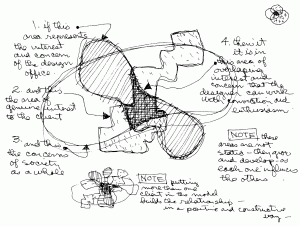 1. if this
area represents
the interest
and concern
of the design
office.
2. and this
the area of
genuine interest
to the client
3. and this
the concerns
of society
as a whole
4. then it
is in
this area of
overlapping
interest and
concern that the
designer can work
with conviction and
enthusiasm
NOTE these
areas are not
static – they grow
and develop – as
each one influences
the others
NOTE putting
more than one
client in the model
builds the relationship –
in a positive and constructive
way –